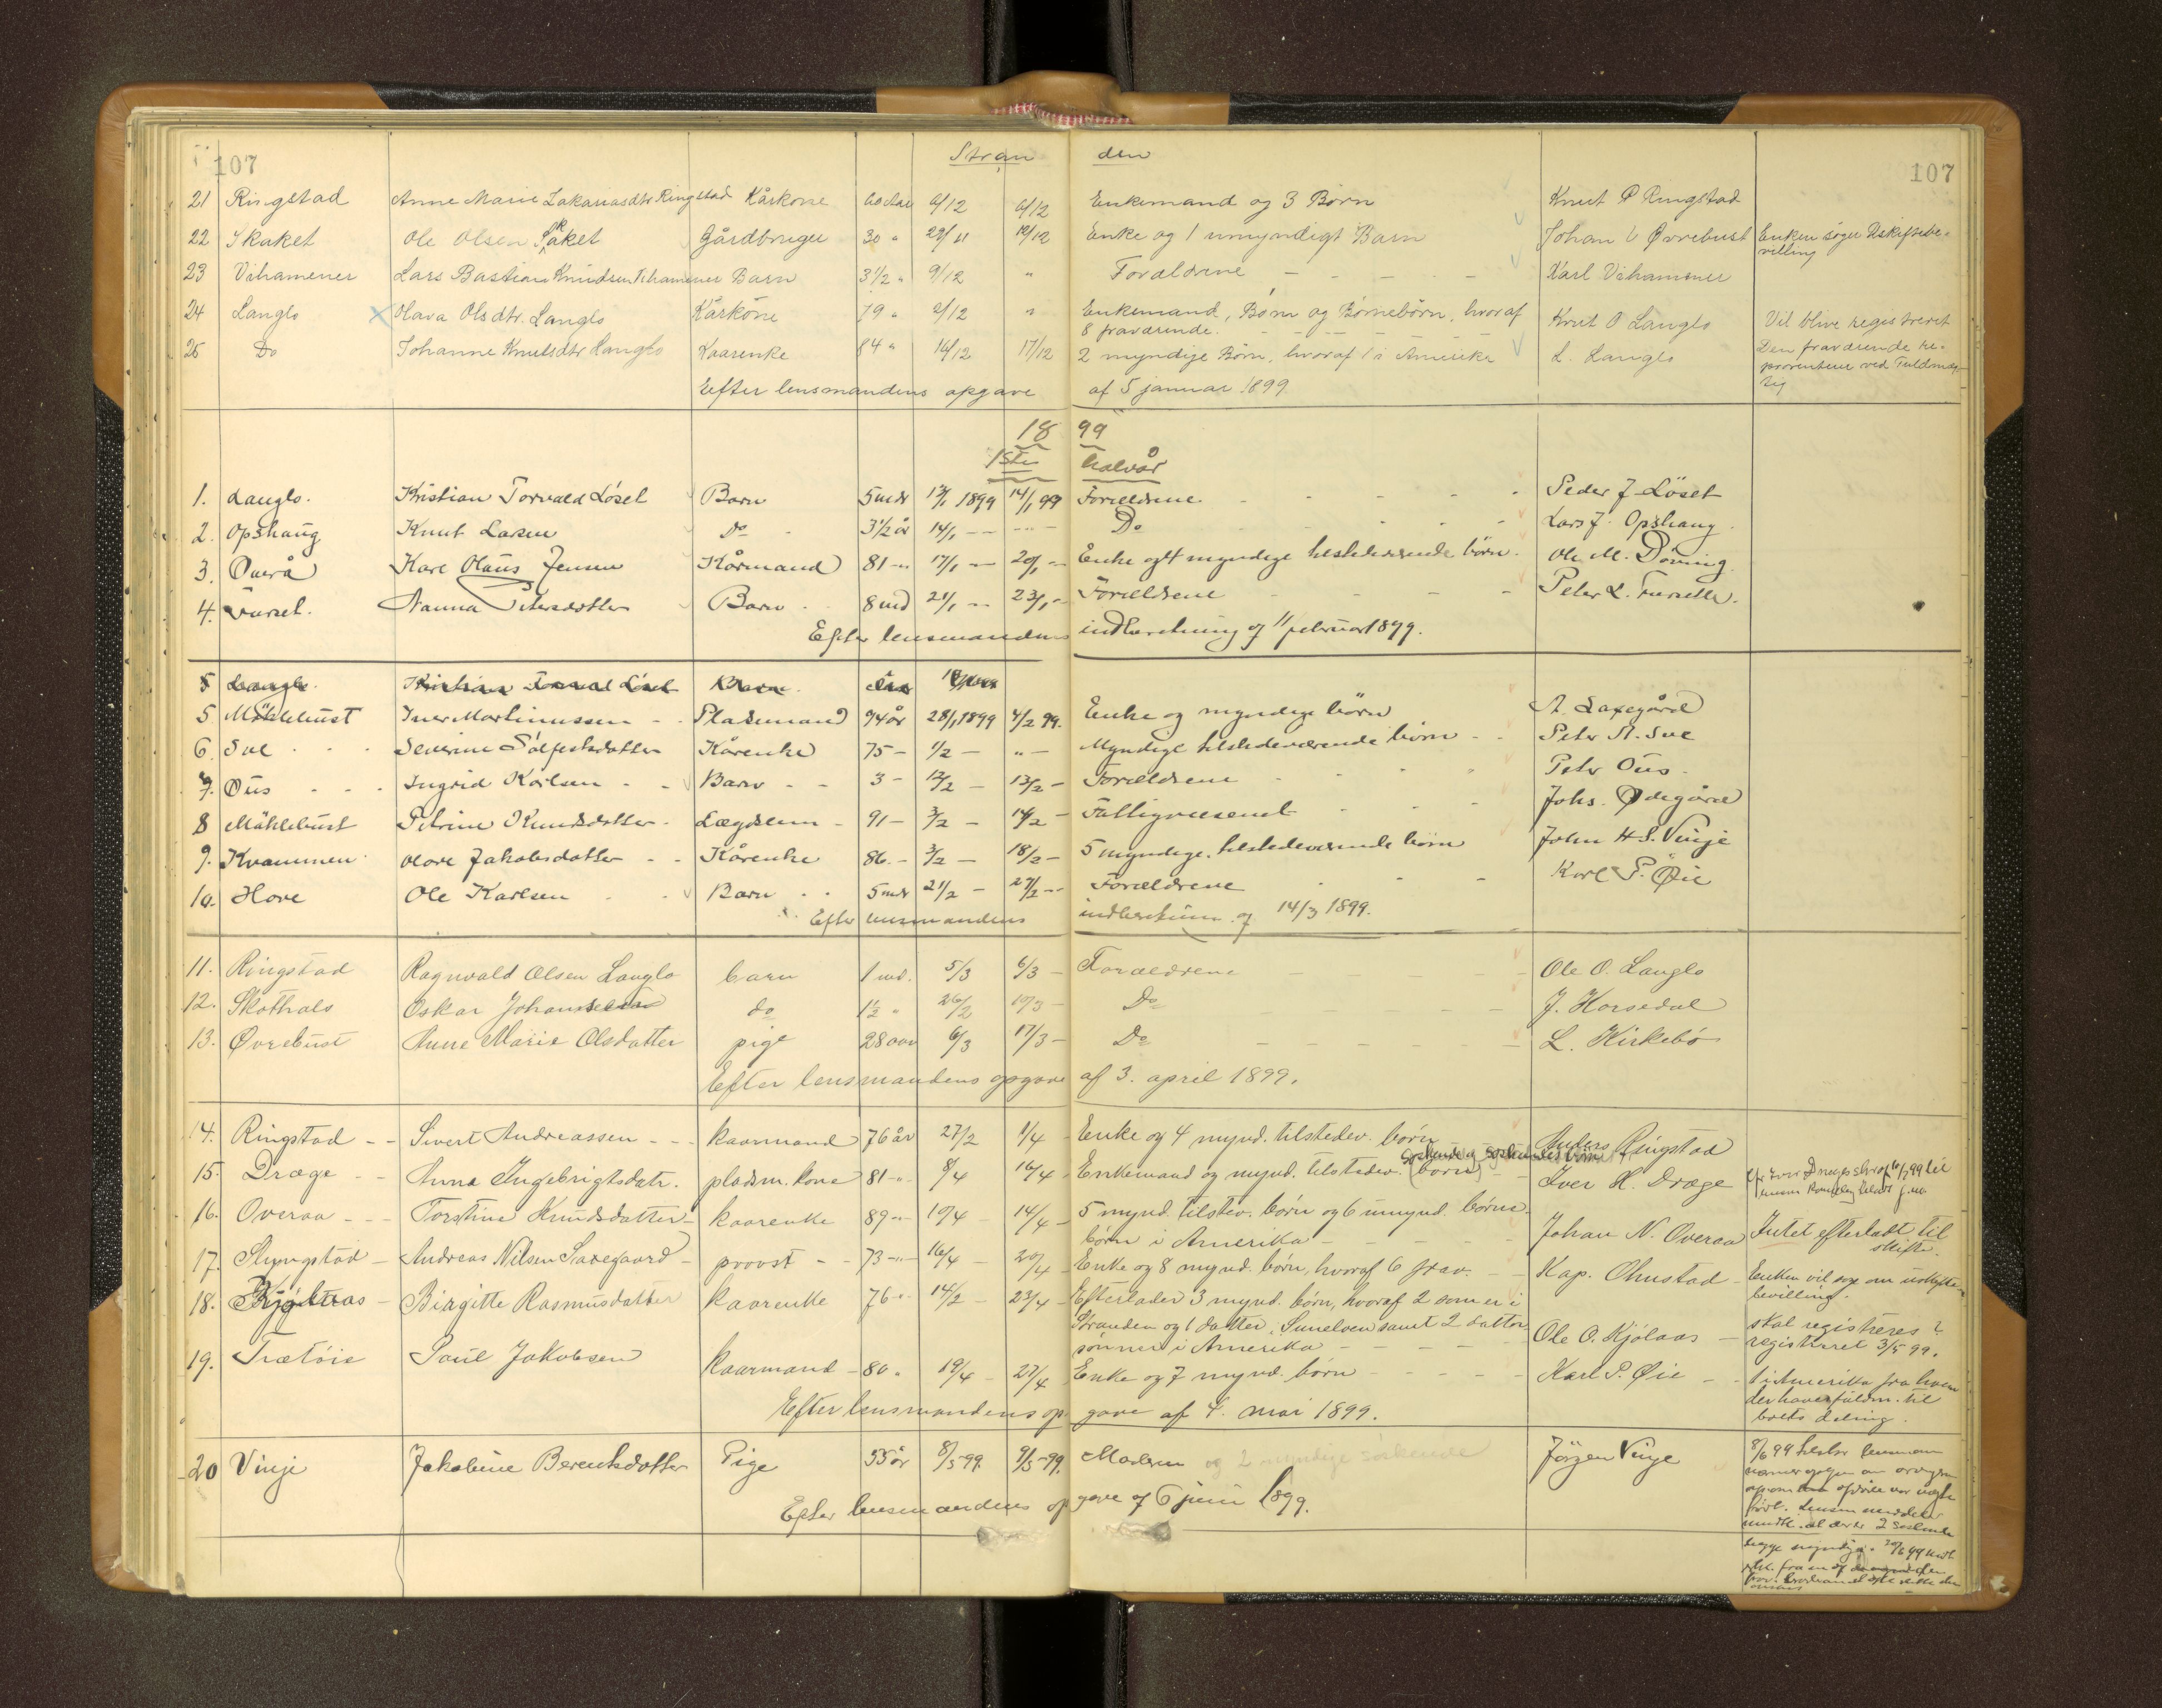 107 Stran den 107
21 Ringstad Anne Marie Zakariasdtr Ringstad Kårkone 60 Aar 6/12 6/12 Enkemand og 3 Børn Knut P Ringstad
22 Skaket Ole Olsen Skaket Gårdbruger 30 " 29/11 12/12 Enke og 1 umyndigt Barn Johan Øvrebust Enken søger Uskiftebe-
villing
23 Vihamener Lars Bastian Knudsen Vihamener Barn 3 1/2 " 9/12 " Forældrene - - - - - Karl Vihamener
24 Langlo Olava Olsdtr. Langlo Kårkone 79 " 2/12 " Enkemand, Børn og Børnebörn, hvoraf
8 fraværende. Knut O Langlo Vil blive registreret
25 Do Johanne Knutsdtr Langlo Kaarenke 84 " 14/12 17/12 2 myndige Børn, hvoraf 1 i Amerika L. Langlo Den fraværende re-
præsenteret ved Fuldmæg-
tig
Efter lensmandens opgave af 5 januar 1899
18 99
1ste halvår
1. Langlo. Kristian Torvald Löset Barn 5 mdr 12/1 1899 14/1 99 Forældrene - - - - - Peder J Löset
2. Opshaug Knut Larsen Do - 3 1/2 år 14/1 - - - - - Do Lars J. Opshaug
3. Overå Karl Olaus Jensen Kårmand 81 - 17/1 - 20/1 - Enke og 4 myndige tilstedeværende börn. Ole M. Döving
4. Furset. Nanna Petersdatter Barn 8 md 21/1 - 23/1 - Forældrene - - - - Peter L. Furseth.
Efter lensmandens indberetning af 11 februar 1899.
5 Langlo. Kristian Torvald Löset Barn
5 Mäklebust Iver Martinussen - - Pladsmand 74 år 28/1 1899 4/2 99. Enke og myndige börn A. Saxegård
6. Sve - - - Severine Sölfestsdatter Kårenke 75 - 1/2 - " - Myndige tilstedeværende börn - - Peter A. Sve
7. Öus - - - Ingrid Karlsen - - Barn - - 3 - 12/2 - 13/2 - Forældrene - - - - Peter Öus.
8 Mäklebust Petrine Knudsdatter - Lægdslem - 91 - 3/2 - 14/2 - Fattigvæsenet - - - Johs. Ödegård
9. Kvammen Olave Jakobsdatter - - Kårenke 86. - 3/2 - 18/2 - 5 myndige tilstedeværende börn John H S. Vinje
10. Hove Ole Karlsen - - Barn - - 5 mdr 21/2 - 27/2 - Forældrene - - - Karl P. Øie
Efter lensmandens indberetning af 14/3 1899.
11. Ringstad Ragnvald Olsen Langlo barn 1 md. 5/3 6/3 - Forældrene - - - - Ole O. Langlo
12. Skothals Oskar Johansen do 1 1/2 " 26/2 10/3 - Do - - - - J. Horsedal
13. Øvrebust Anne Marie Olsdatter pige 28 aar 6/3 17/3 - Do - - - - L. Kirkebö
Efter lensmandens opgave af 3. april 1899.
14. Ringstad - - Sivert Andreassen - - - kaarmand 76 år 27/2 1/4 - Enke og 4 mynd. tilstedev. börn Anders Ringstad
söskende og söskendesbörn
15. Dræge - - Anna Ingebrigtsdatr. pladsm. kone 81 - 8/4 16/4 - Enkemand og mynd. tilstedev. (börn) - - Iver H. Dræge
16. Overaa - - - Torstine Knudsdatter - kaarenke 89 - 10/4 - 14/4 - 5 mynd. tilstev. börn og 6 umynd. börne-
börn i Amerika - - - - - Johan N. Overaa Intet efterladt til
skifte.
17. Slyngstad - Andreas Nilsen Saxegaard - provst - - 73 - 16/4 - 20/4 - Enke og 8 mynd. börn, hvoraf 6 frav. - - Kap. Ohnstad - Enken vil søge om uskifte-
bevilling.
18. Kjölaas - Birgitte Rasmusdatter kaarenke 76 - 14/2 - 23/4 - Efterlader 3 mynd. börn, hvoraf 2 som er i
Stranden og 1 datter i Sunelven samt 2 datter-
sönner i Amerika - - - - Ole O. Kjölaas - skal registreres?
registreret 3/5 99.
19. Trætöie Poul Jakobsen kaarmand - 80 " 19/4 - 27/4 Enke og 7 mynd. börn - - - - Karl P. Øie - - 1 i Amerika fra hvem
der haves fuldm. til
boets deling.
Efter lensmandens opgave af 4. mai 1899.
20 Vinje Jakobine Berentsdatter Pige 55 år 8/5 99. 9/5 - 99. Moderen og 2 myndige söskende Jörgen Vinje
Efter lensmandens opgave af 6 juni 1899.